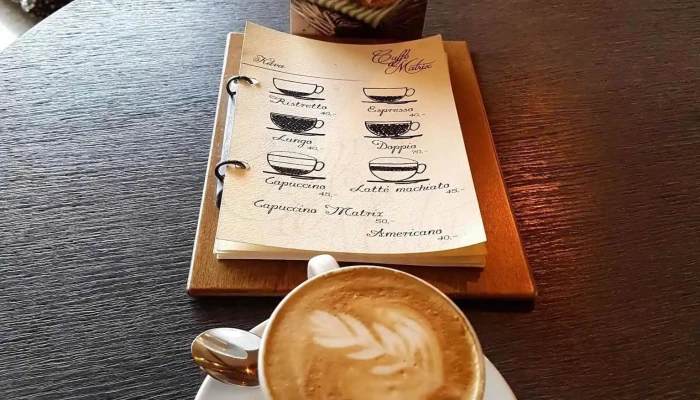 Káva
Caffe
Matrix
Ristretto
40,-
Espresso
40,-
Lungo
40,-
Doppio
70,-
Capuccino
45,-
Latté machiato
45,-
Capuccino Matrix
50,-
Americano
40,-